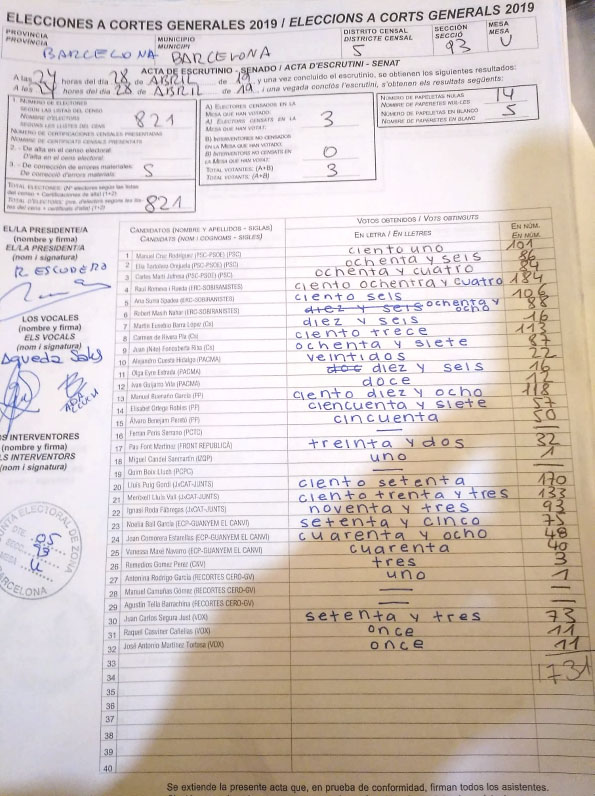 ELECCIONES A CORTES GENERALES 2019 / ELECCIONS A CORTS GENERALS 2019
PROVINCIA
PROVÍNCIA
BARCELONA
MUNICIPIO
MUNICIPI
BARCELONA
DISTRITO CENSAL
DISTRICTE CENSAL
5
SECCIÓN
SECCIÓ
93
MESA
MESA
U
ACTA DE ESCRUTINIO - SENADO / ACTA D'ESCRUTINI - SENAT
A las 24 horas del día 28 de ABRIL de 19, y una vez concluido el escrutinio, se obtienen los siguientes resultados:
A les 24 hores del dia 28 de ABRIL de 19, i una vegada conclòs l'escrutini, s'obtenen els resultats següents:
1. Número de electores
según las listas del censo
Nombre d'electors
segons les llistes del cens
821
Número de certificaciones censales presentadas
Nombre de certificats censals presentats
2. - De alta en el censo electoral
D'alta en el cens electoral
3. - De corrección de errores materiales
De correcció d'errors materials
5
Total electores: (Nº electores según las listas del censo + Certificaciones de alta) (1+2)
821
A) Electores censados en la
Mesa que han votado
A) Electors censats en la
Mesa que han votat
3
B) Interventores no censados
en la Mesa que han votado
B) Interventors no censats en
la Mesa que han votat
0
Total votantes: (A+B)
Total votants: (A+B)
3
Número de papeletas nulas
Nombre de paperetes nul·les
14
Número de papeletas en blanco
Nombre de paperetes en blanc
5
EL/LA PRESIDENTE/A
(nombre y firma)
EL/LA PRESIDENT/A
(nom i signatura)
R. ESCUDERO
LOS VOCALES
(nombre y firma)
ELS VOCALS
(nom i signatura)
Agueda
LOS INTERVENTORES
(nombre y firma)
ELS INTERVENTORS
(nom i signatura)
JUNTA ELECTORAL DE ZONA
DTE. 05
93
MESA U
BARCELONA
Candidatos (nombre y apellidos - siglas)
Candidats (nom i cognoms - sigles)
Votos obtenidos / Vots obtinguts
En letra / En lletres
En núm.
En núm.
1 Manuel Cruz Rodríguez (PSC-PSOE) (PSC) ciento uno 101
2 (PSC-PSOE) (PSC) ochenta y seis 86
3 Carles Martí Jufresa (PSC-PSOE) (PSC) ochenta y cuatro 84
4 Raül Romeva i Rueda (ERC-SOBIRANISTES) ciento ochentra y cuatro 184
5 Ana Surra Spadea (ERC-SOBIRANISTES) ciento seis 106
6 Robert Masih Nahar (ERC-SOBIRANISTES) diez y seis ochenta y ocho 88
7 Martín Eusebio Barra López (Cs) diez y seis 16
8 Carmen de Rivera Pla (Cs) ciento trece 113
9 Juan (Nito) Foncuberta Rica (Cs) ochenta y siete 87
10 Alejandro Cuesta Hidalgo (PACMA) veintidos 22
11 Olga Eyre Estrada (PACMA) doc diez y seis 16
12 Ivan Guijarro Vila (PACMA) doce 12
13 Manuel Buenaño García (PP) ciento diez y ocho 118
14 Elisabet Ortega Robles (PP) ciencuenta y siete 57
15 Álvaro Benejam Peretó (PP) cincuenta 50
16 Ferran Peris Serrano (PCTC) —
17 Pau Font Martínez (FRONT REPUBLICÀ) treinta y dos 32
18 Miguel Candel Sanmartín (IZQP) uno 1
19 Quim Boix Lluch (PCPC) — —
20 Lluís Puig Gordi (JxCAT-JUNTS) ciento setenta 170
21 Meritxell Lluís Vall (JxCAT-JUNTS) ciento trenta y tres 133
22 Ignasi Roda Fàbregas (JxCAT-JUNTS) noventa y tres 93
23 Noelia Bail García (ECP-GUANYEM EL CANVI) setenta y cinco 75
24 Joan Comorera Estarellas (ECP-GUANYEM EL CANVI) cuarenta y ocho 48
25 Vanessa Maxé Navarro (ECP-GUANYEM EL CANVI) cuarenta 40
26 Remedios Gómez Pérez (CNV) tres 3
27 Antonina Rodrigo García (RECORTES CERO-GV) uno 1
28 Manuel Camañas Gómez (RECORTES CERO-GV) — —
29 Agustín Tella Barrachina (RECORTES CERO-GV) — —
30 Juan Carlos Segura Just (VOX) setenta y tres 73
31 Raquel Casviner Cañellas (VOX) once 11
32 José Antonio Martínez Tortosa (VOX) once 11
33
1731
34
35
36
37
38
39
40
Se extiende la presente acta que, en prueba de conformidad, firman todos los asistentes.